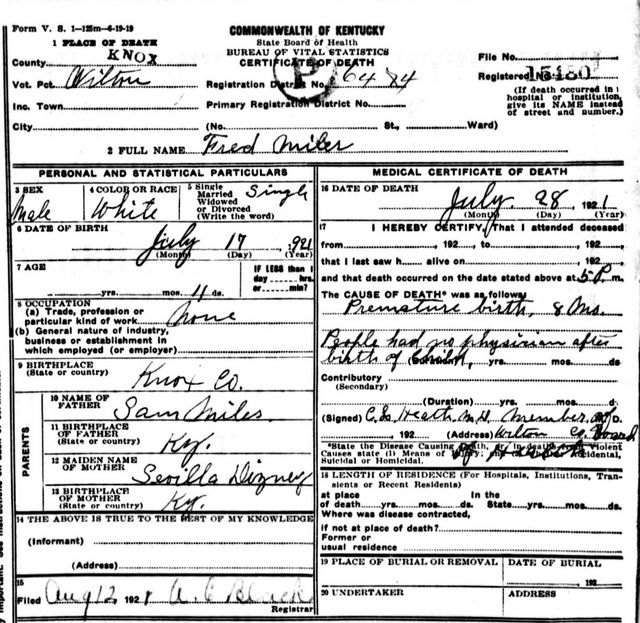 Form V. S. 1—125m—6-19-19
COMMONWEALTH OF KENTUCKY
State Board of Health
BUREAU OF VITAL STATISTICS
CERTIFICATE OF DEATH
1 PLACE OF DEATH
County KNOX
Vot. Pct. Wilton
Inc. Town
City
Registration District No. 6484
P
Primary Registration District No.
(No. St., Ward)
File No.
Registered No. 15480
(If death occurred in
hospital or institution,
give its NAME instead
of street and number.)
2 FULL NAME Fred Miles
PERSONAL AND STATISTICAL PARTICULARS
3 SEX
Male
4 COLOR OR RACE
White
5 Single
Married
Widowed
or Divorced
(Write the word)
Single
6 DATE OF BIRTH
July 17, 1921
(Month) (Day) (Year)
7 AGE
yrs. mos. 11 ds.
IF LESS than 1
day hrs.
or min?
8 OCCUPATION
(a) Trade, profession or
particular kind of work none
(b) General nature of industry,
business or establishment in
which employed (or employer)
9 BIRTHPLACE
(State or country)
Knox Co.
PARENTS
10 NAME OF
FATHER
Sam Miles
11 BIRTHPLACE
OF FATHER
(State or country)
Ky.
12 MAIDEN NAME
OF MOTHER
Sevilla Dizney
13 BIRTHPLACE
OF MOTHER
(State or country)
Ky.
14 THE ABOVE IS TRUE TO THE BEST OF MY KNOWLEDGE
(Informant)
(Address)
15
Filed Aug 12, 1921 A. C. Black
Registrar
MEDICAL CERTIFICATE OF DEATH
16 DATE OF DEATH
July 28, 1921
(Month) (Day) (Year)
17 I HEREBY CERTIFY, That I attended deceased
from , 192 , to , 192 ,
that I last saw h alive on , 192 ,
and that death occurred on the date stated above at 5 P.m.
The CAUSE OF DEATH* was as follows:
Premature birth, 8 Mo.
People had no physician after
birth of Child,
(Duration) yrs. mos. ds.
Contributory
(Secondary)
(Duration) yrs. mos. ds.
(Signed) C. L. Heath M.D. Member of
, 192 (Address) Wilton Co Board
of Health
*State the Disease Causing Death, or, in deaths from Violent
Causes state (1) Means of Injury; Accidental,
Suicidal or Homicidal.
18 LENGTH OF RESIDENCE (For Hospitals, Institutions, Tran-
sients or Recent Residents)
at place In the
of death yrs. mos. ds. State yrs. mos. ds.
Where was disease contracted,
if not at place of death?
Former or
usual residence
19 PLACE OF BURIAL OR REMOVAL
DATE OF BURIAL
, 192
20 UNDERTAKER
ADDRESS